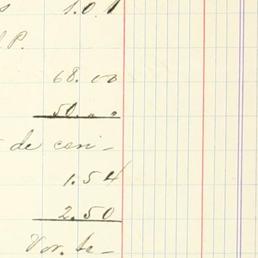 s 1.0.1
P.
68.00
50.00
de cari-
1.54
2.50
Vor. te-